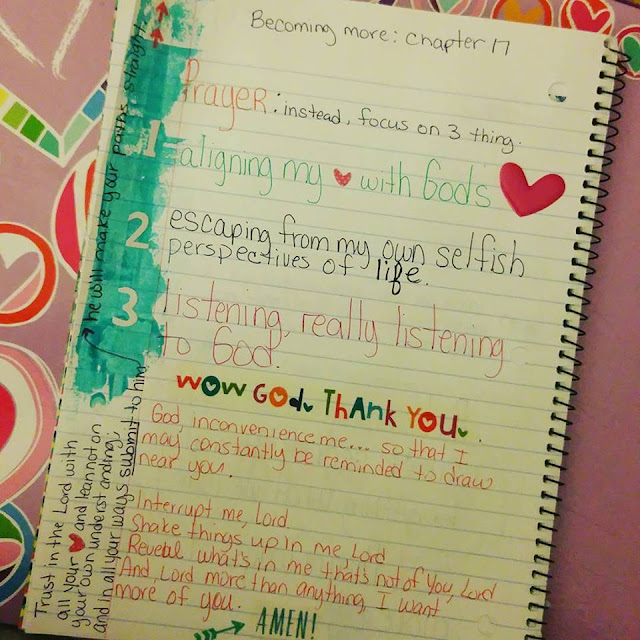 Becoming more: Chapter 17
Prayer: instead, focus on 3 thing.
1 aligning my ❤ with Gods ❤
2 escaping from my own selfish
perspectives of life.
3 listening, really listening
to God.
WOW GOD. THANK YOU.
God, inconvenience me... so that I
may constantly be reminded to draw
near you.
Interrupt me, Lord
Shake things up in me, Lord
Reveal what's in me that's not of you, Lord
And Lord more than anything, I want
more of you.
AMEN!
Trust in the Lord with
all your ❤ and lean not on
your own understanding,
and in all your ways submit to him
he will make your paths straight.